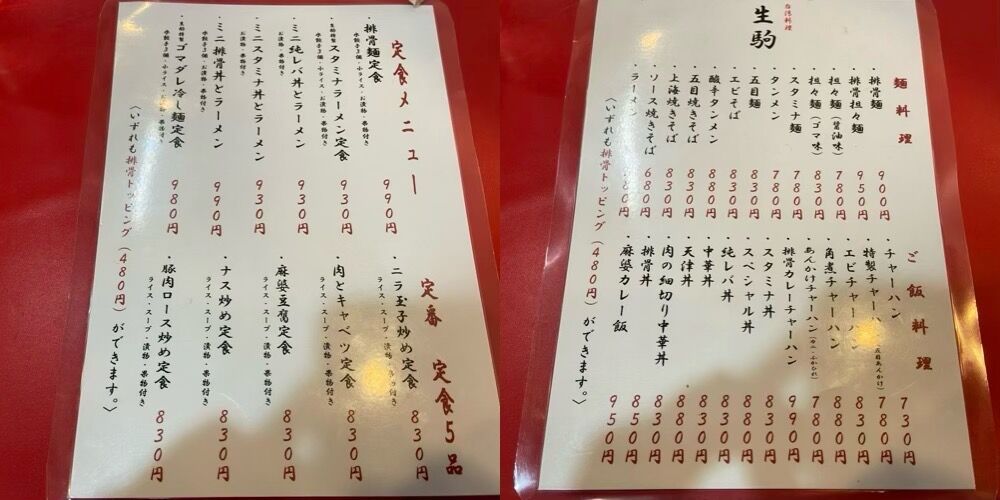 定食メニュー
・排骨麺定食 990円
水餃子3個・小ライス・お漬物・果物付き
・生駒特製スタミナラーメン定食 930円
水餃子3個・小ライス・お漬物・果物付き
・ミニ純レバ丼とラーメン 930円
お漬物・果物付き
・ミニスタミナ丼とラーメン 930円
お漬物・果物付き
・ミニ排骨丼とラーメン 990円
お漬物・果物付き
・生駒特製ゴマダレ冷し麺定食 980円
水餃子3個・小ライス・お漬物・果物付き
定番 定食5品
・ニラ玉子炒め定食 830円
ライス・スープ・漬物・果物付き
・肉とキャベツ定食 830円
ライス・スープ・漬物・果物付き
・麻婆豆腐定食 830円
ライス・スープ・漬物・果物付き
・ナス炒め定食 830円
ライス・スープ・漬物・果物付き
・豚肉ロース炒め定食 830円
ライス・スープ・漬物・果物付き
〈いずれも排骨トッピング（480円）ができます。〉
台湾料理
生駒
麺料理
・排骨麺 900円
・排骨担々麺 950円
・担々麺（醤油味） 780円
・担々麺（ゴマ味） 830円
・スタミナ麺 780円
・タンメン 780円
・五目麺 830円
・エビそば 830円
・酸辛タンメン 880円
・五目焼きそば 830円
・上海焼きそば 830円
・ソース焼きそば 680円
・ラーメン 80円
ご飯料理
・チャーハン 730円
・特製チャーハン（五目あんかけ） 780円
・エビチャーハン 830円
・角煮チャーハン 880円
・あんかけチャーハン（カニ・ふかひれ） 780円
・排骨カレーチャーハン 990円
・スタミナ丼 830円
・スペシャル丼 880円
・純レバ丼 830円
・中華丼 830円
・天津丼 880円
・肉の細切り中華丼 830円
・排骨丼 850円
・麻婆カレー飯 950円
〈いずれも排骨トッピング（480円）ができます。〉